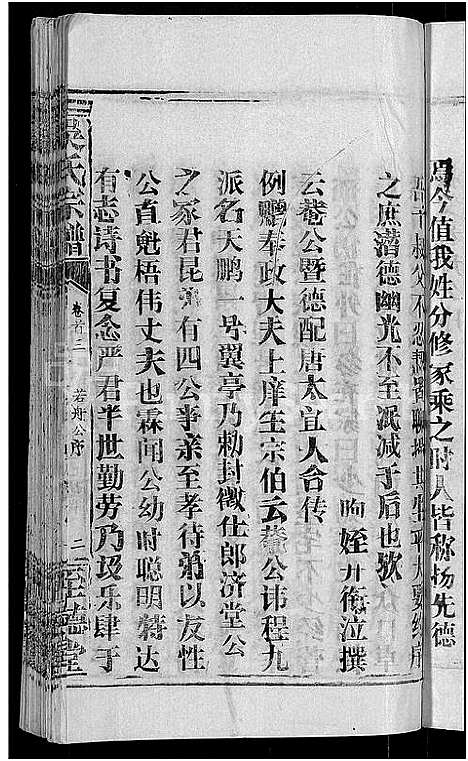 今值我姓分修家乘之时人皆称扬先德
叔父不忍
之庶潜德幽光不至泯减于后也欤
眴姪廾衔泣撰
云菴公暨德配唐太宜人合传
例鹏奉政大夫上庠生宗伯云菴公讳程九
派名天鹏一号翼亭乃勅封徵仕郎济堂公
之冢君昆弟有四公事亲至孝待弟以友性
公直魁梧伟丈夫也霖闻公幼时聪明颖达
有志诗书复念严君半世勤劳乃圾乐肆于
吴氏宗谱
卷首三
若舟公序
二
至德堂